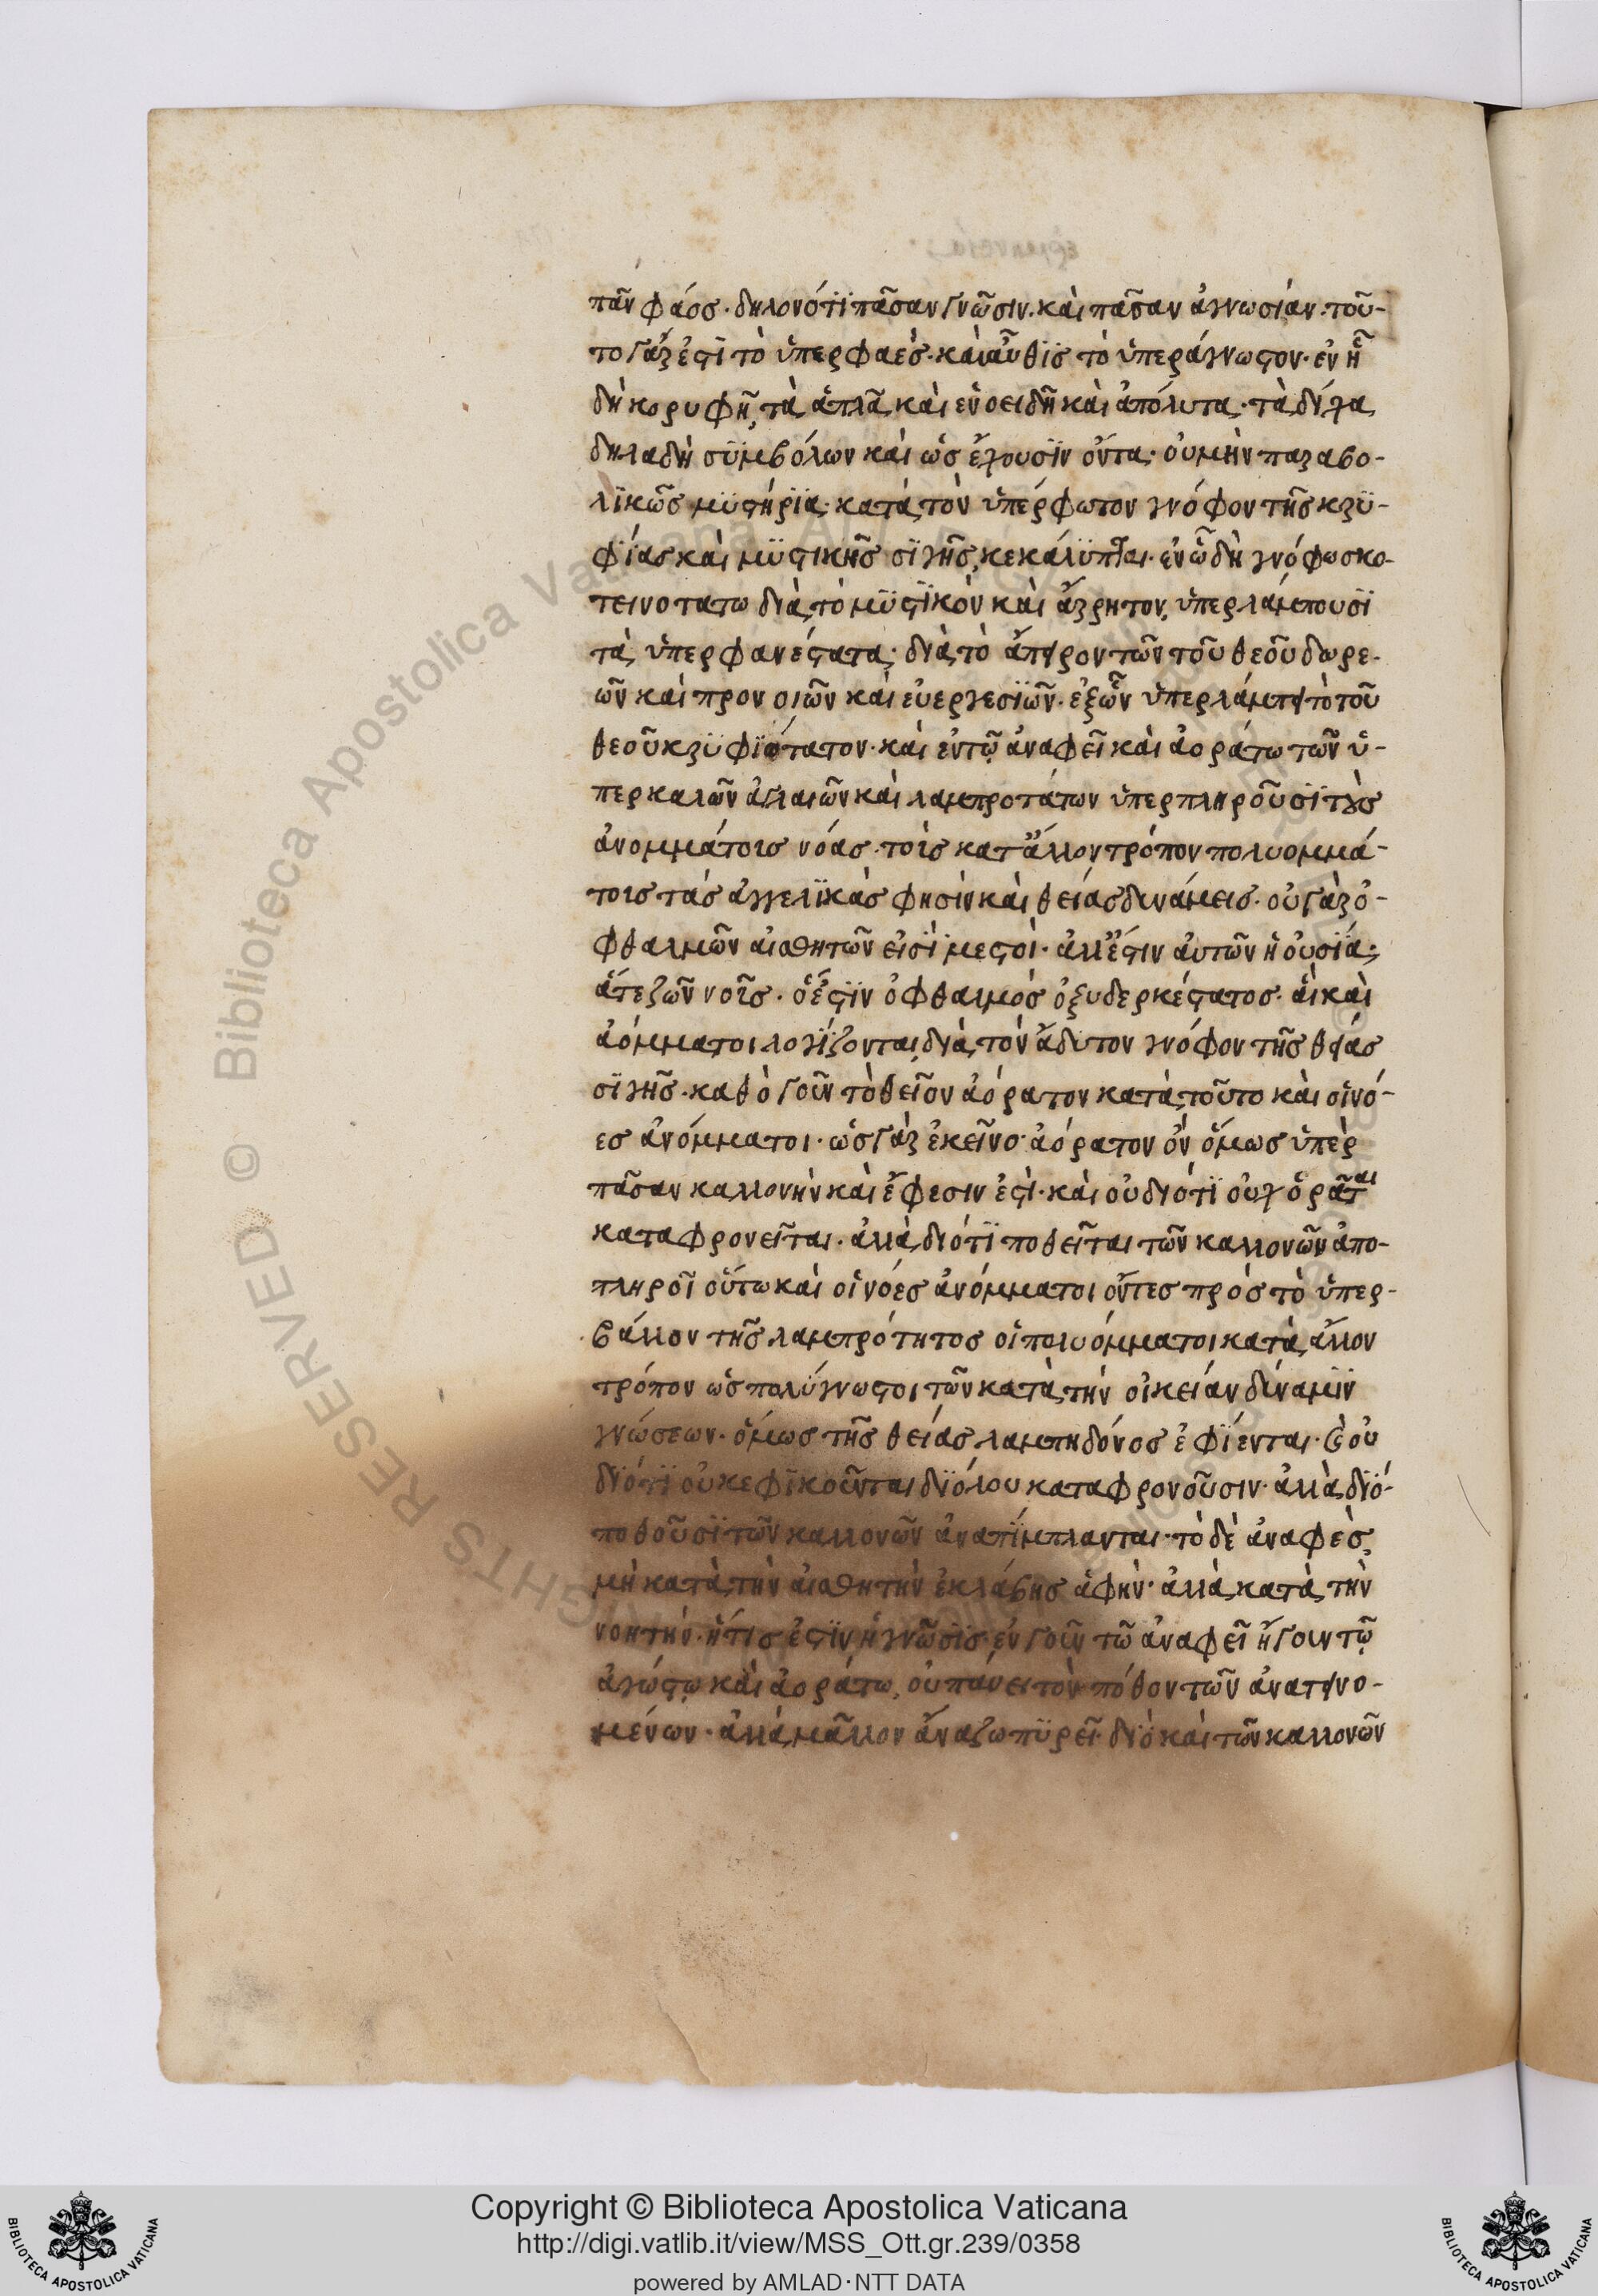 πᾶν φάος· δηλονότϊ πᾶσαν γνῶσιν. καὶ πᾶσαν ἀγνωσίαν· τοῦ-
το γάρ ἐστὶ τὸ ὑπερφαὲς· καὶ αὖθϊς τὸ ὑπεράγνωστον· ἐν ᾗ
δὴ κορυφῇ, τὰ ἁπλᾶ καὶ ἑνοειδῆ καὶ ἀπόλυτα· τὰ δίχα
δηλαδὴ σϋμβόλων καὶ ὡς ἔχουσϊν ὄντα· οὐ μὴν παραβο-
λϊκῶς μϋστήρϊα· κατὰ τὸν ὑπέρφωτον γνόφον τῆς κρϋ-
φΐας καὶ μϋστικῆς σϊγῆς, κεκάλϋπται· ἐν ᾧ δὴ γνόφω σκο-
τεινοτατω διὰ τὸ μϋστϊκὸν καὶ ἄρρητον, ὑπερλάμπουσϊ
τὰ ὑπερφανέστατα· διὰ τὸ ἄπειρον τῶν τοῦ θεοῦ δωρε-
ῶν καὶ προνοιῶν καὶ εὐεργεσϊῶν· ἐξ ὧν ὑπερλάμπει τὸ τοῦ
θεοῦ κρϋφϊότατον· καὶ ἐν τῷ ἀναφεῖ καὶ ἀοράτω τῶν ὑ-
περκαλῶν ἀγλαιῶν καὶ λαμπροτάτων ὑπερπληροῦσϊ τοὺς
ἀνομμάτοις νόας· τοῖς κατ ἄλλον τρόπον πολυομμά-
τοις τὰς ἀγγελϊκὰς φησὶν καὶ θείας δυνάμεις· οὐ γὰρ ὀ-
φθαλμῶν αἰσθητῶν εἰσὶ μεστοὶ· ἀλλ ἔστιν ἀυτῶν ἡ οὐσΐα·
ἅτε ζῶν νοῦς· ὅ ἐστϊν ὀφθαλμὸς ὀξυδερκέστατος· αἳ καὶ
ἀόμματοι λογΐζονται διὰ τὸν ἄδυτον γνόφον τῆς θείας
σϊγῆς· καθὸ γοῦν τὸ θεῖον ἀόρατον κατὰ τοῦτο καὶ οἱ νό-
ες ἀνόμματοι· ὡς γὰρ ἐκεῖνο ἀόρατον ὂν ὅμως ὑπὲρ
πᾶσαν καλλονὴν καὶ ἔφεσιν ἐστὶ· καὶ οὐ διότϊ οὐχ ὁρᾶται
καταφρονεῖται· ἀλλὰ διότϊ ποθεῖται τῶν καλλονῶν ἀπο-
πληροῖ οὕτω καὶ οἱ νόες ἀνόμματοι ὄντες πρὸς τὸ ὑπερ-
βάλλον τῆς λαμπρότητος οἱ πολυόμματοι κατὰ ἄλλον
τρόπον ὡς πολύγνωστοι τῶν κατὰ τὴν οἰκείαν δύναμϊν
γνώσεων· ὅμως τῆς θείας λαμπηδόνος ἐφΐενται· καὶ οὐ
διότϊ οὐκ εφϊκοῦνται διόλου καταφρονοῦσιν· ἀλλὰ διό-
ποθοῦσϊ τῶν καλλονῶν ἀναπΐμπλανται· τὸ δὲ ἀναφὲς,
μὴ κατὰ τὴν αἰσθητὴν ἐκλάβης ἁφὴν· ἀλλὰ κατὰ τὴν
νοητήν· ἥτις ἐστϊν ἡ γνῶσϊς· ἐν γοῦν τῶ ἀναφεῖ ἤγουν τῷ
ἀγνώστῳ καὶ ἀοράτω, οὐ παύει τὸν πόθον τῶν ἀνατεινο-
μένων· ἀλλὰ μᾶλλον ἀναζωπϋρεῖ· διὸ καὶ τῶν καλλονῶν
Copyright © Biblioteca Apostolica Vaticana
http://digi.vatlib.it/view/MSS_Ott.gr.239/0358
powered by AMLAD·NTT DATA
BIBLIOTECA APOSTOLICA VATICANA
BIBLIOTECA APOSTOLICA VATICANA